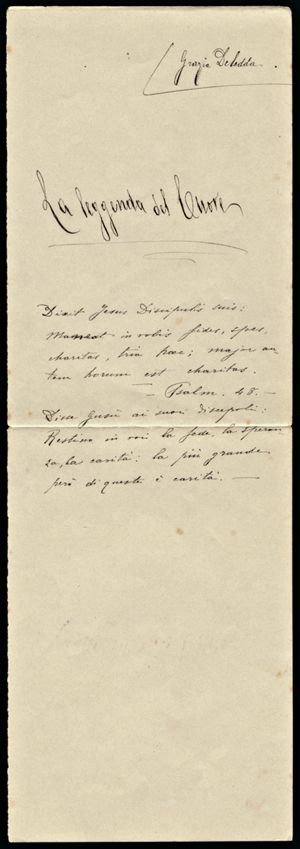 Grazia Deledda
La leggenda del Cuore
Dixit Jesus Discipulis suis:
Maneat in vobis fides, spes,
charitas, tria haec; major au
tem horum est charitas.
— Psalm. 48. —
Disse Gesù ai suoi discepoli:
Restino in voi la fede, la speran
za, la carità: la più grande
però di queste è carità. —